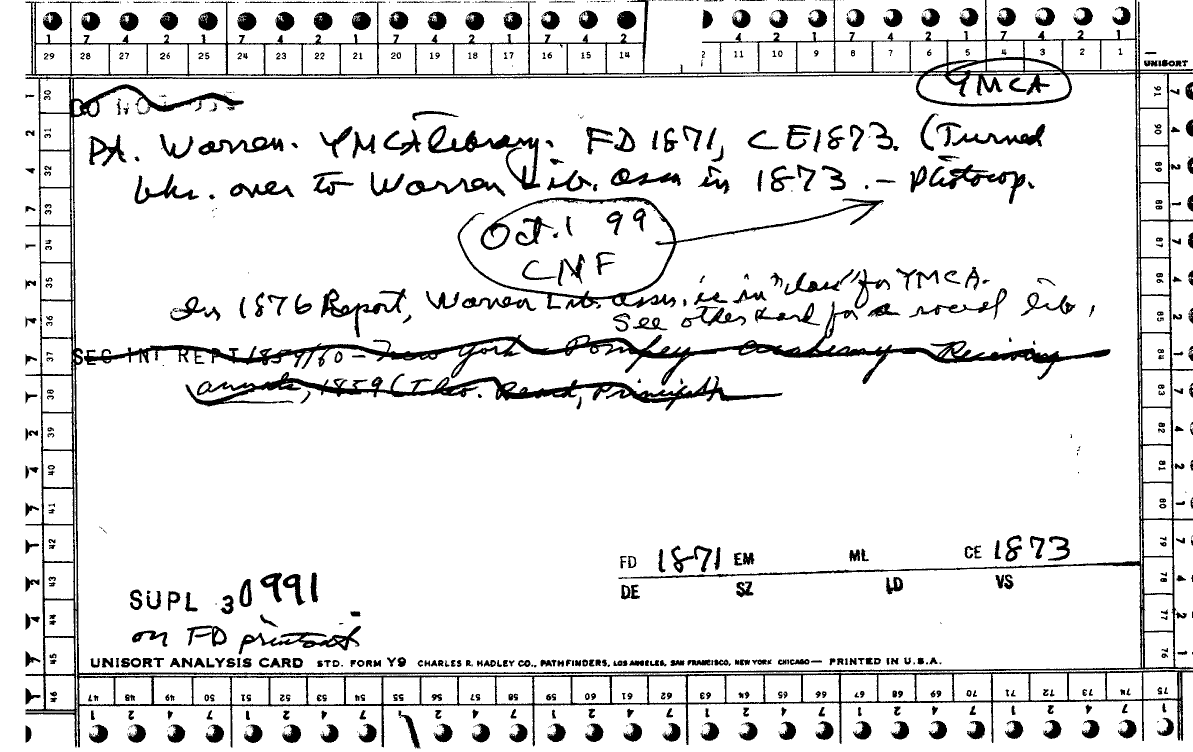 1 7 4 2 1 7 4 2 1 7 4 2 1 7 4 2 4 2 1 7 4 2 1 7 4 2 1
29 28 27 26 25 24 23 22 21 20 19 18 17 16 15 14 11 10 9 8 7 6 5 4 3 2 1
UNISORT
YMCA
DO NOT
PA. Warren. YMCA Library. FD 1871, CE 1873. (Turned
bks. over to Warren Lib. Assn in 1873. — Photocop.
Oct. 1 99
CNF
In 1876 Report, Warren Lib. Assn. is in "class" for YMCA.
See other card for a social lib.
SEC INT REPT 1859/60 - New York - Pompey Academy - Receiving
annuals, 1859 (Theo. Beard, Principal)
FD 1871 EM ML CE 1873
DE SZ LD VS
SUPL 30991
on FD printout
UNISORT ANALYSIS CARD STD. FORM Y9 CHARLES R. HADLEY CO., PATHFINDERS, LOS ANGELES, SAN FRANCISCO, NEW YORK CHICAGO — PRINTED IN U.S.A.
30 31 32 33 34 35 36 37 38 39 40 41 42 43 44 45 46
91 90 89 88 87 86 85 84 83 82 81 80 79 78 77 76
47 48 49 50 51 52 53 54 55 56 57 58 59 60 61 62 63 64 65 66 67 68 69 70 71 72 73 74 75